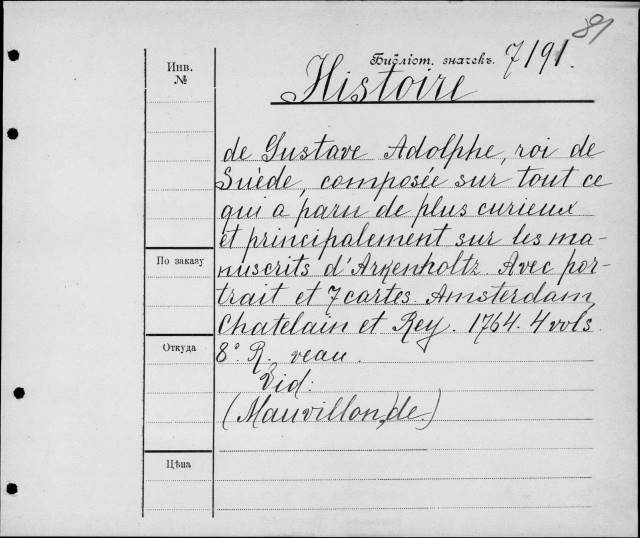 89
Библіот. значекъ. 7191.
Инв.
№
Histoire
de Gustave Adolphe, roi de
Suède, composée sur tout ce
qui a paru de plus curieux
et principalement sur les ma-
nuscrits d'Arkenholtz. Avec por-
По заказу
trait et 7 cartes. Amsterdam,
Chatelain et Rey. 1764. 4 vols.
Откуда
8° R. veau.
Vid:
(Mauvillon, de.)
Цѣна